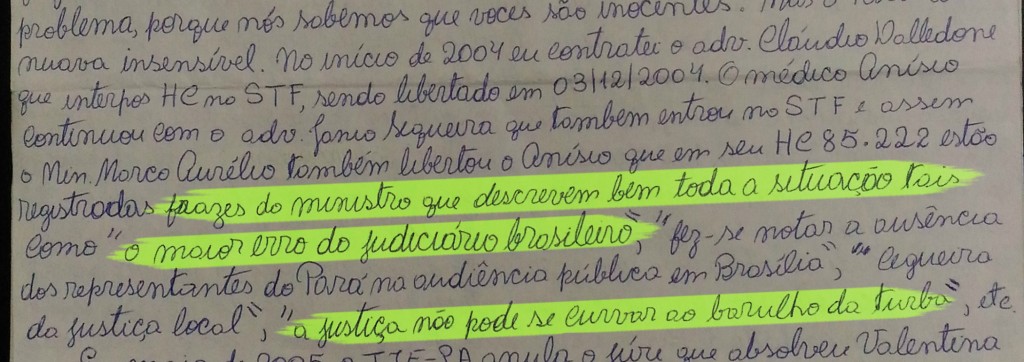 problema, porque nós sabemos que voces são inocentes.
nuava insensível. No início de 2004 eu contratei o adv. Cláudio Dalledone
que interpos HC no STF, sendo libertado em 03/12/2004. O médico Anísio
continuou com o adv. Janio Siqueira que tambem entrou no STF e assem
o Min. Marco Aurélio também libertou o Anísio que em seu HC 85.222 estão
registradas frazes do ministro que descrevem bem toda a situação tais
como "o maior erro do judiciário brasileiro", "fez-se notar a ausência
dos representantes do Pará na audiência pública em Brasília", "cegueira
da justiça local", "a justiça não pode se curvar ao barulho da turba", etc.
de 2005 o TJE-PA anula o júri que absolveu Valentina